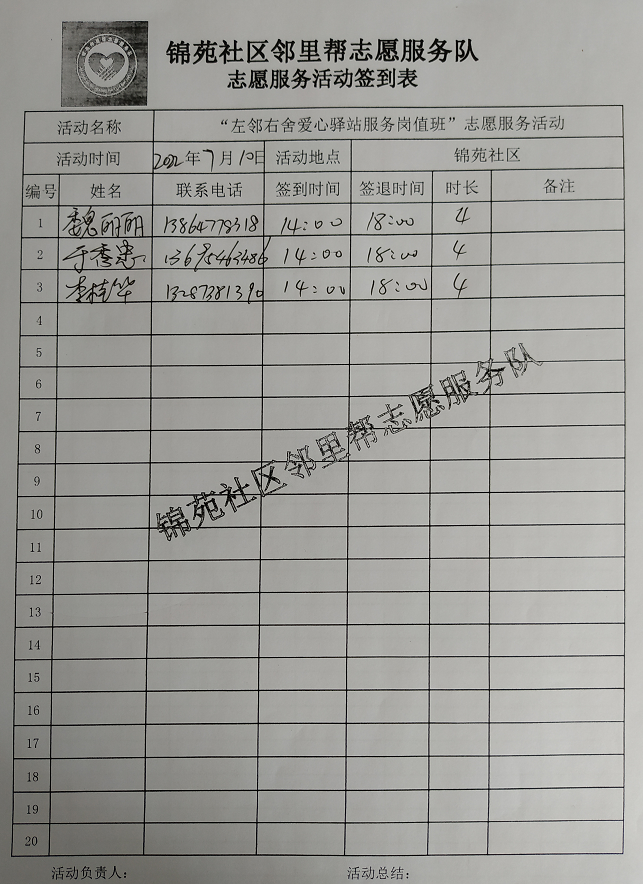 锦苑社区邻里帮志愿服务队
志愿服务活动签到表
活动名称 “左邻右舍爱心驿站服务岗值班”志愿服务活动
活动时间 2022年7月10日 活动地点 锦苑社区
编号 姓名 联系电话 签到时间 签退时间 时长 备注
1 魏丽丽 13864778318 14:00 18:00 4
2 于秀忠 13695463486 14:00 18:00 4
3 李桂华 13287381390 14:00 18:00 4
4
5
6
7
8
9
10
11
12
13
14
15
16
17
18
19
20
锦苑社区邻里帮志愿服务队
活动负责人: 活动总结: